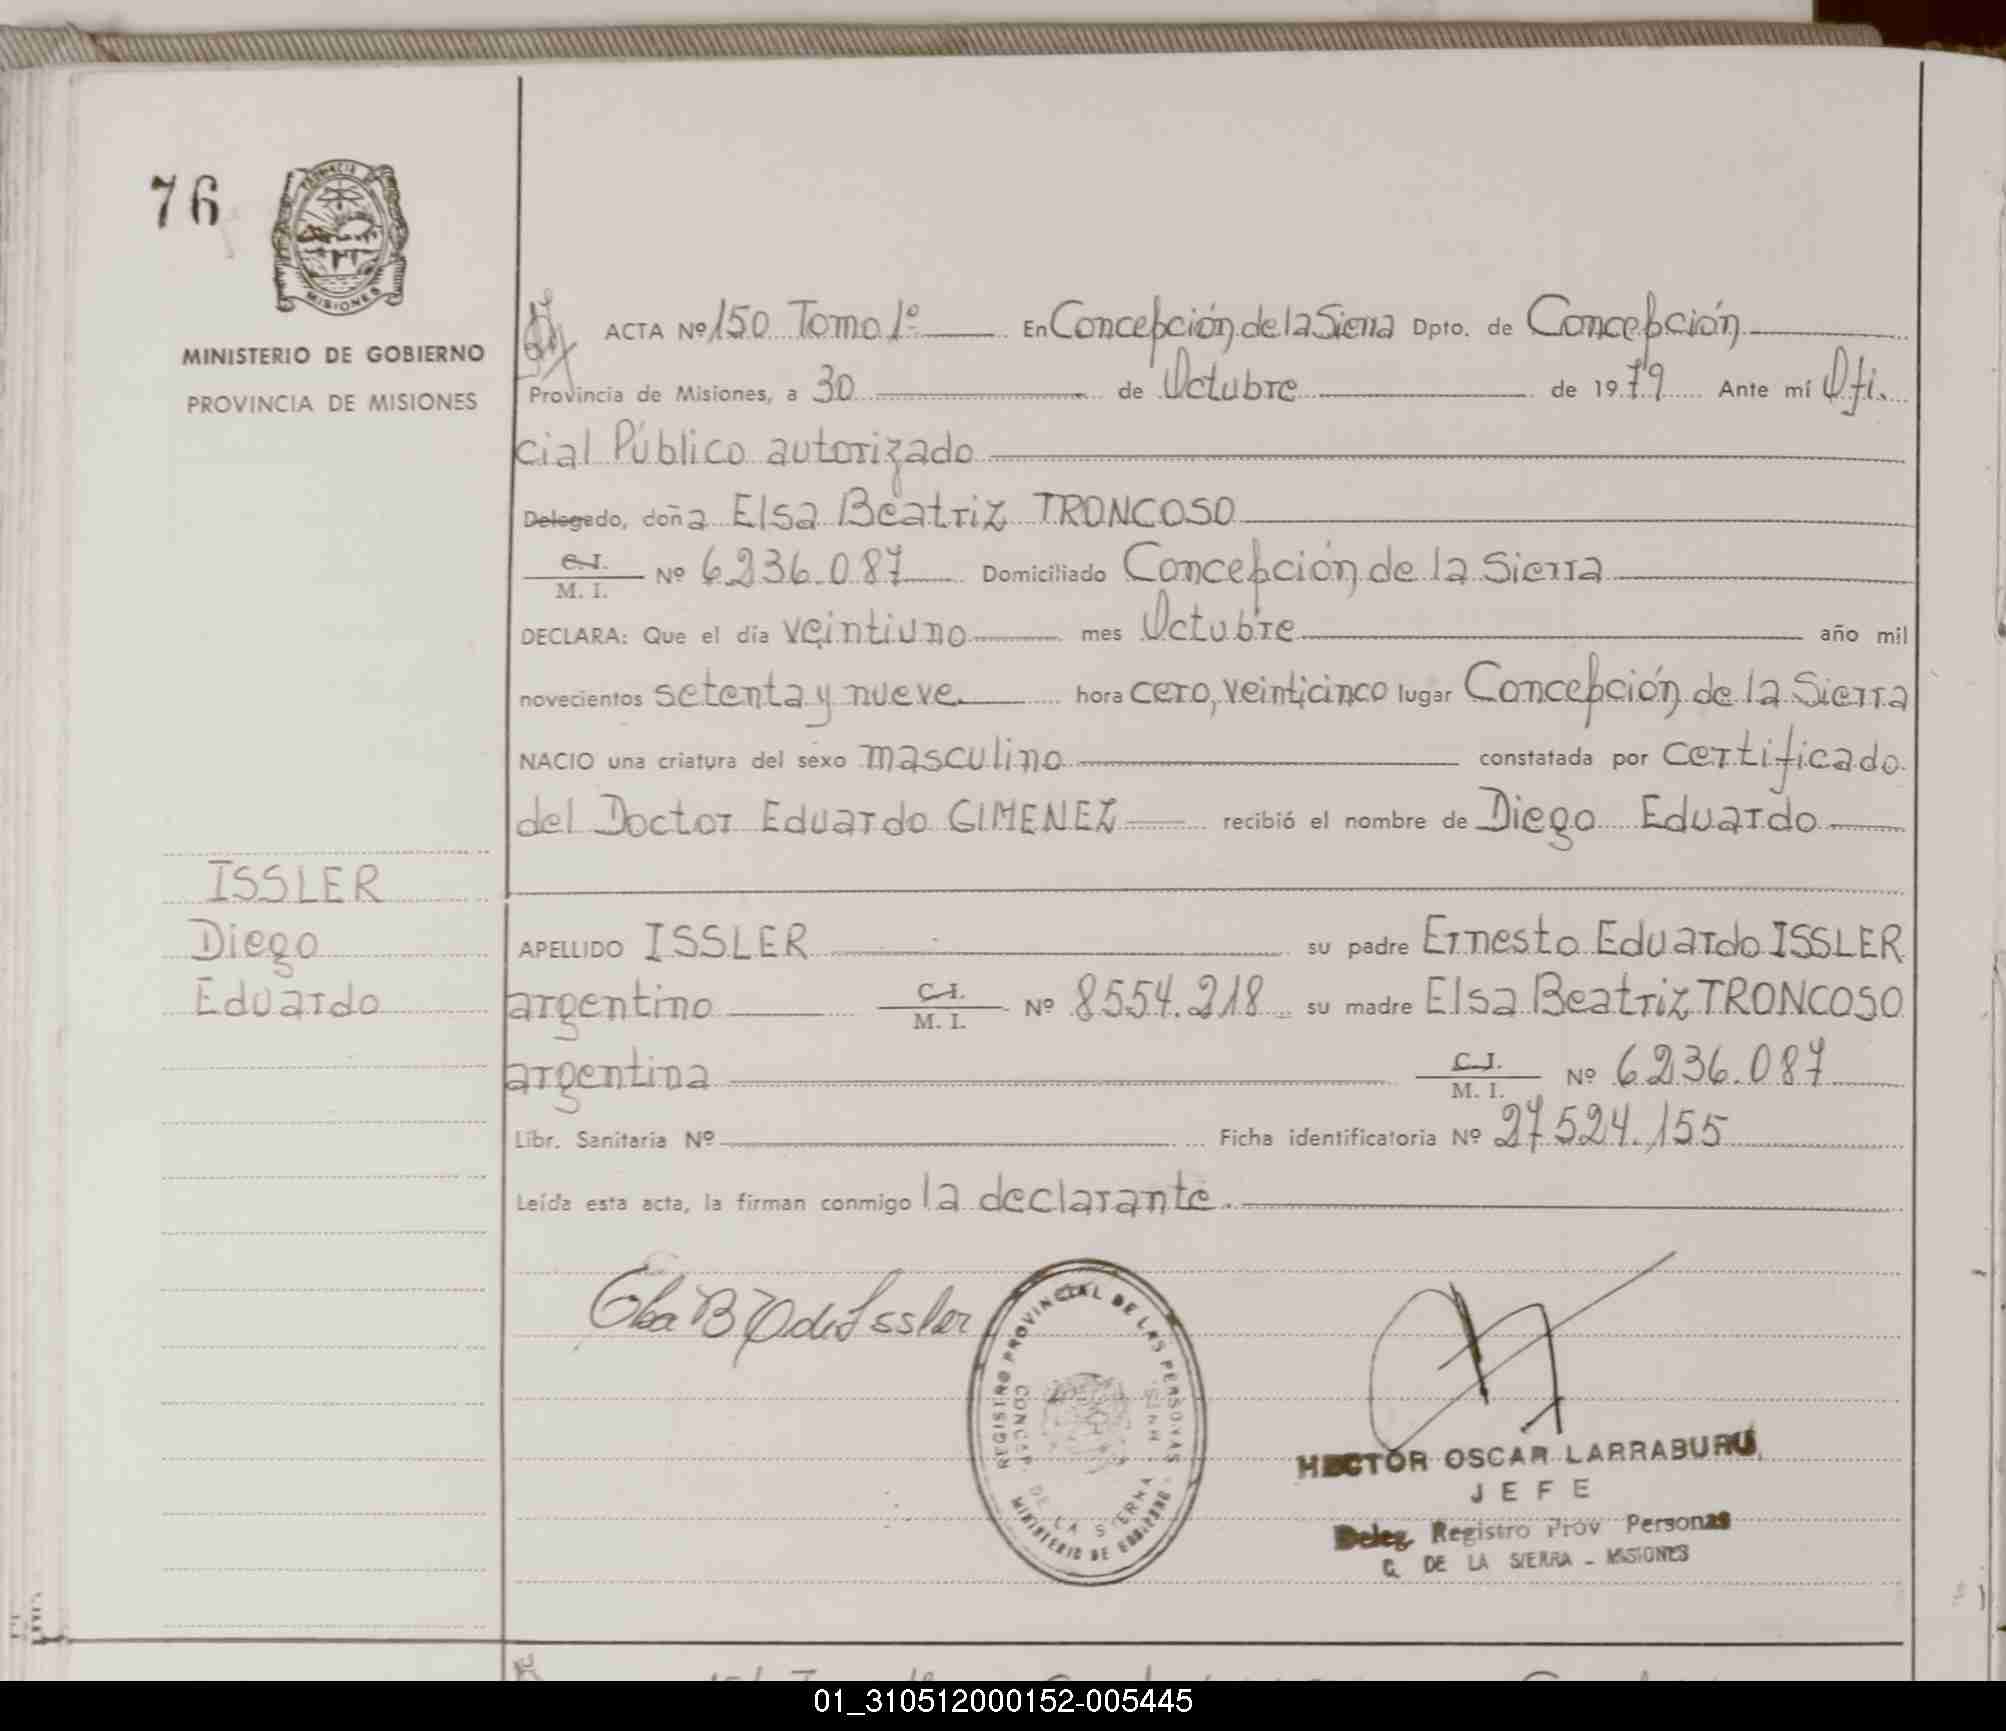 76
PROVINCIA
MISIONES
MINISTERIO DE GOBIERNO
PROVINCIA DE MISIONES
ACTA Nº 150 Tomo 1º En Concepción de la Sierra Dpto. de Concepción
Provincia de Misiones, a 30 de Octubre de 1979 Ante mí Ofi-
cial Público autorizado
Delegado, doña Elsa Beatriz TRONCOSO
C.I.
M. I. Nº 6236.087 Domiciliado Concepción de la Sierra
DECLARA: Que el día veintiuno mes Octubre año mil
novecientos setenta y nueve hora cero, veinticinco lugar Concepción de la Sierra
NACIO una criatura del sexo masculino constatada por certificado
del Doctor Eduardo GIMENEZ recibió el nombre de Diego Eduardo
ISSLER
Diego
Eduardo
APELLIDO ISSLER su padre Ernesto Eduardo ISSLER
argentino C.I. M. I. Nº 8554.218 su madre Elsa Beatriz TRONCOSO
argentina C.I. M. I. Nº 6236.087
Libr. Sanitaria Nº Ficha identificatoria Nº 27524.155
Leída esta acta, la firman conmigo la declarante.
REGISTRO PROVINCIAL DE LAS PERSONAS
CONCEP. DE LA SIERRA
MINISTERIO DE GOBIERNO
HECTOR OSCAR LARRABURU
JEFE
Deleg. Registro Prov Personas
C. DE LA SIERRA - MISIONES
01_310512000152-005445